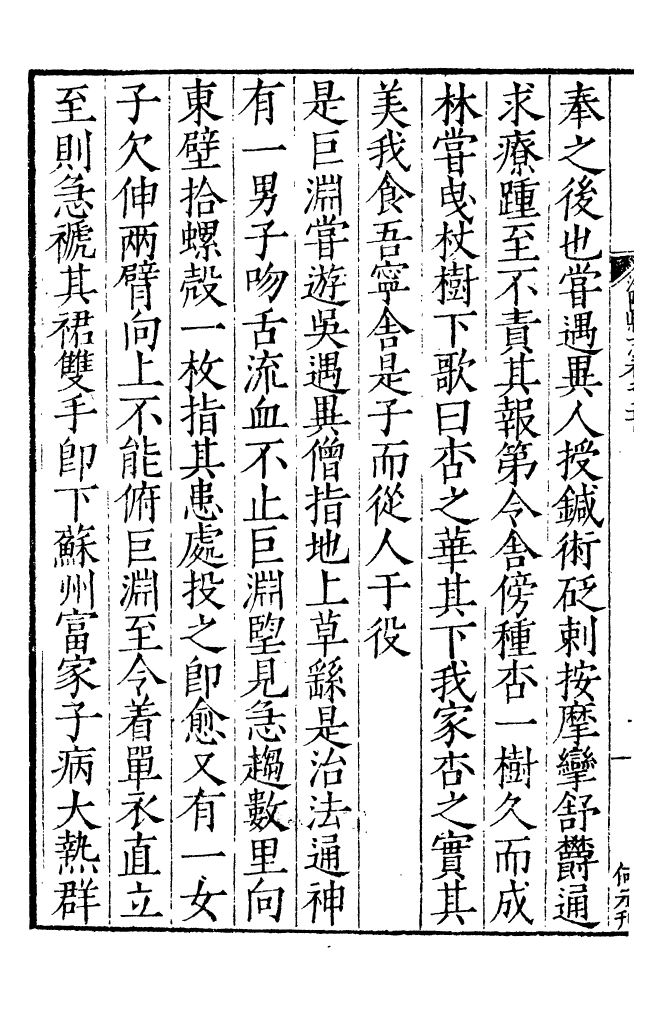 奉之後也嘗遇異人授鍼術砭刺按摩攣舒欝通
求療踵至不責其報第令舍傍種杏一樹久而成
林嘗曳杖樹下歌曰杏之華其下我家杏之實其
美我食吾寧舍是子而從人于役
是巨淵嘗遊吳遇異僧指地上草繇是治法通神
有一男子吻舌流血不止巨淵朢見急趨數里向
東壁拾螺殻一枚指其患處投之卽愈又有一女
子欠伸兩臂向上不能俯巨淵至令着單衣直立
至則急褫其裙雙手卽下蘇州富家子病大熱群
一
何元刊